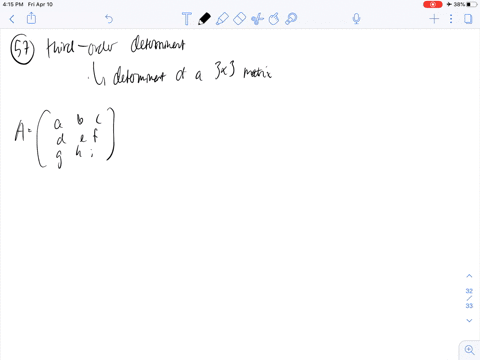 4:15 PM Fri Apr 10
38%
57 third-order determinant
determinant of a 3x3 matrix
A = ( a b c
d e f
g h i )
32
/
33